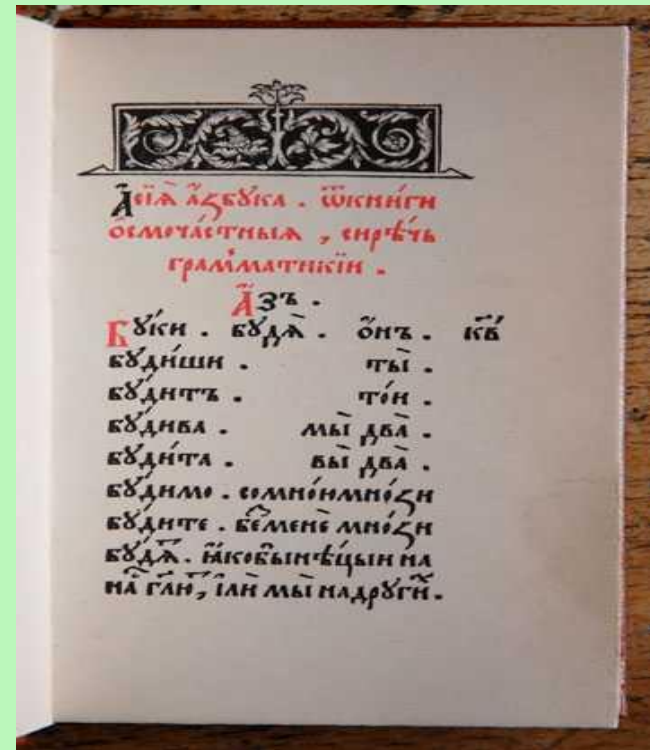 А҆сїѧ̀ а҆́збꙋка . ѿкни́ги
ѻ҆смоча́стныѧ , сирѣ́чь
грамматикі́и .
А҆́зъ .
Бꙋ́ки . бꙋдѧ̀ . ѻ҆́нъ . кв҃
бꙋди́ши . ты̀ .
бꙋ́дитъ . то́и .
бꙋ́дива . мы̀ два̀ .
бꙋди́та . вы̀ два̀ .
бꙋ́димо . сомно́имно́ѕи
бꙋ́дите . беⷥменѐ мно́ѕи
бꙋ́дѧⷮ . ꙗ҆́кобынѣ́цыи на
на̀ гл҃ю , і҆лѝ мы̀ надрꙋги́ⷯ .